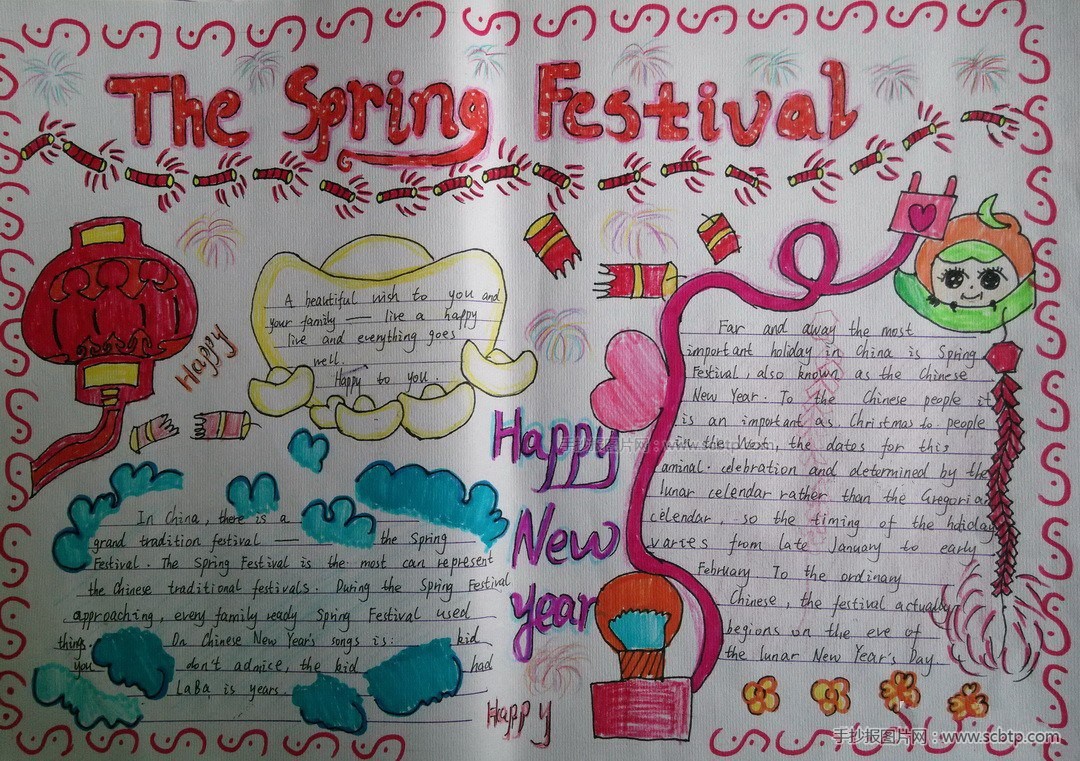 The Spring Festival
A beautiful wish to you and
your family — live a happy
live and everything goes
well.
Happy to you.
Happy
In China, there is a
grand tradition festival — the Spring
Festival. The Spring Festival is the most can represent
the Chinese traditional festivals. During the Spring Festival
approaching, every family ready Spring Festival used
things. On Chinese New Year's songs is: kid
you don't admice, the kid had
LaBa is years.
Happy
New
year
Happy
Far and away the most
important holiday in China is Spring
Festival, also known as the Chinese
New Year. To the Chinese people it
is an important as Christmas to people
in the West, the dates for this
aminal. celebration and determined by the
lunar celendar rather than the Gregoria
celendar, so the timing of the hdiolay
varies from late January to early
February To the ordinary
Chinese, the festival actually
begions on the eve of
the lunar New Year's Day.
手抄报图片网:www.scbtp.com